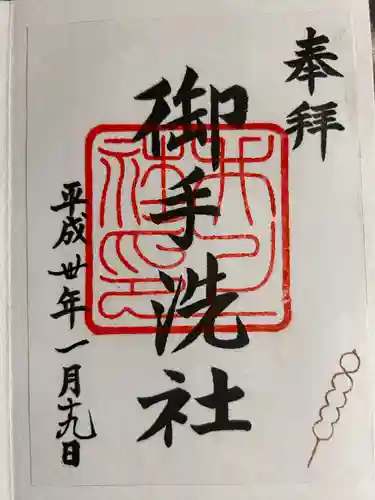 奉拝
御手洗社
平成卅年一月十九日